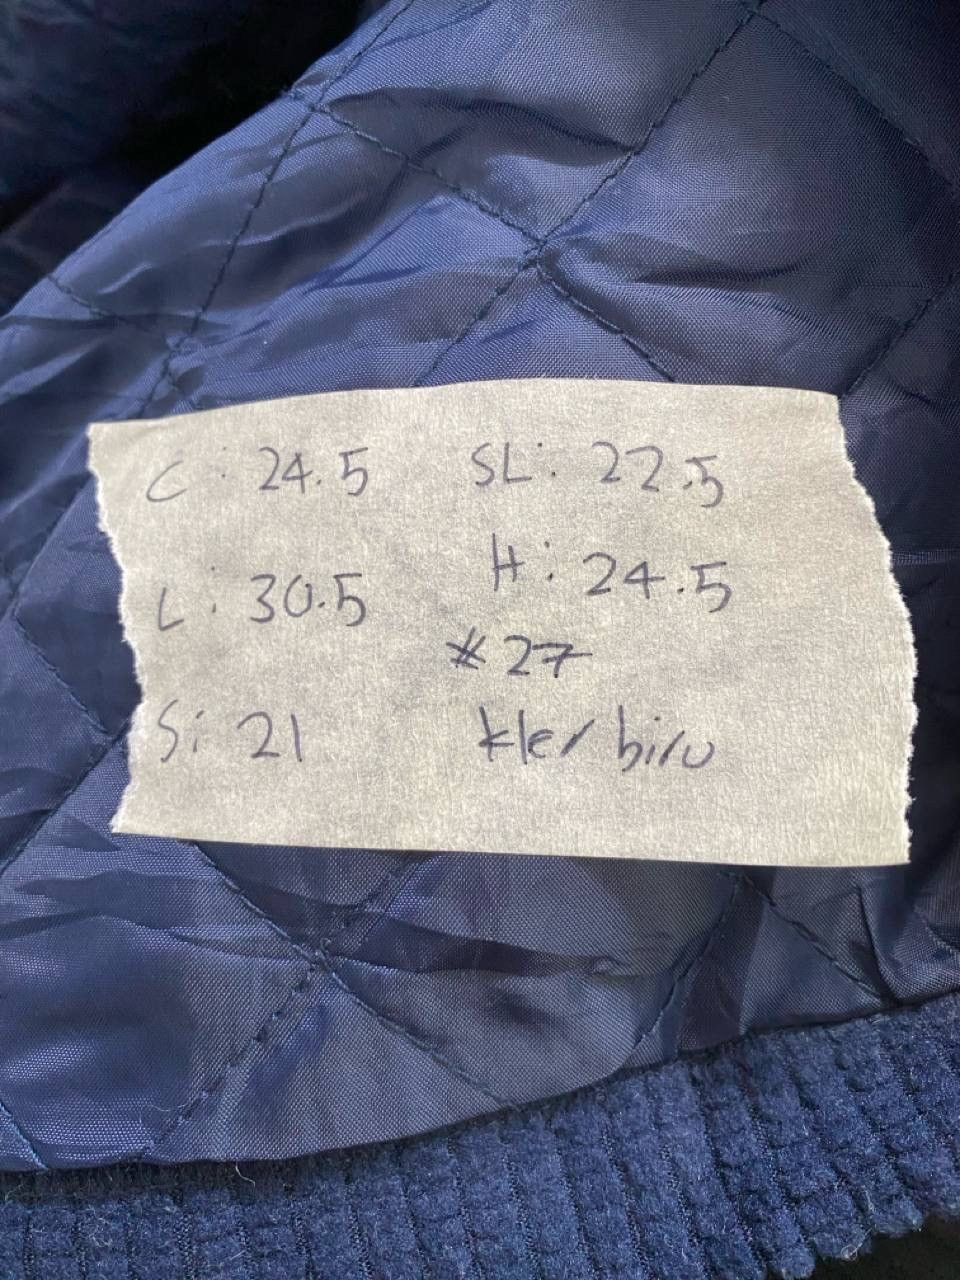 C : 24.5 SL : 22.5
L : 30.5 H : 24.5
# 27
S : 21 kler biru